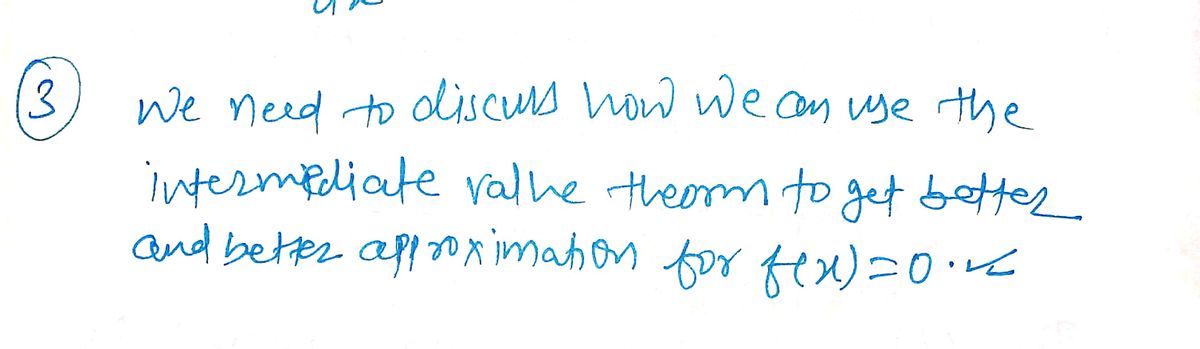 ③ We need to discuss how we can use the
intermediate value theorm to get better
and better approximation for f(x)=0.